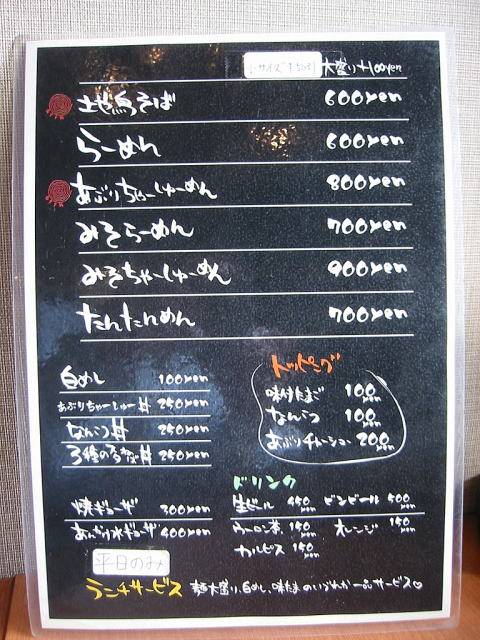 大盛り+100yen
地鳥そば 600yen
らーめん 600yen
あぶりちゃーしゅーめん 800yen
みそらーめん 700yen
みそちゃーしゅーめん 900yen
たんたんめん 700yen
白めし 100yen
あぶりちゃーしゅー丼 250yen
なんこつ丼 250yen
3種の 丼 250yen
トッピング
味付たまご 100yen
なんこつ 100yen
あぶりチャーシュー 200yen
焼ギョーザ 300yen
水ギョーザ 400yen
ドリンク
生ビール 450yen ビンビール 500yen
ウーロン茶 150yen オレンジ 150yen
カルピス 150yen
平日のみ
ランチサービス 麺大盛り、白めし、味たまのいづれか一品サービス♡